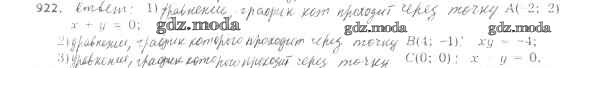 922. Ответ: 1) уравнение, график кот проходит через точку A(-2; 2)
x + y = 0; gdz.moda
gdz.moda gdz.moda
2) уравнение, график которого проходит через точку B(4; -1): xy = -4;
3) уравнение, график которого проходит через точку C(0; 0): x y = 0.